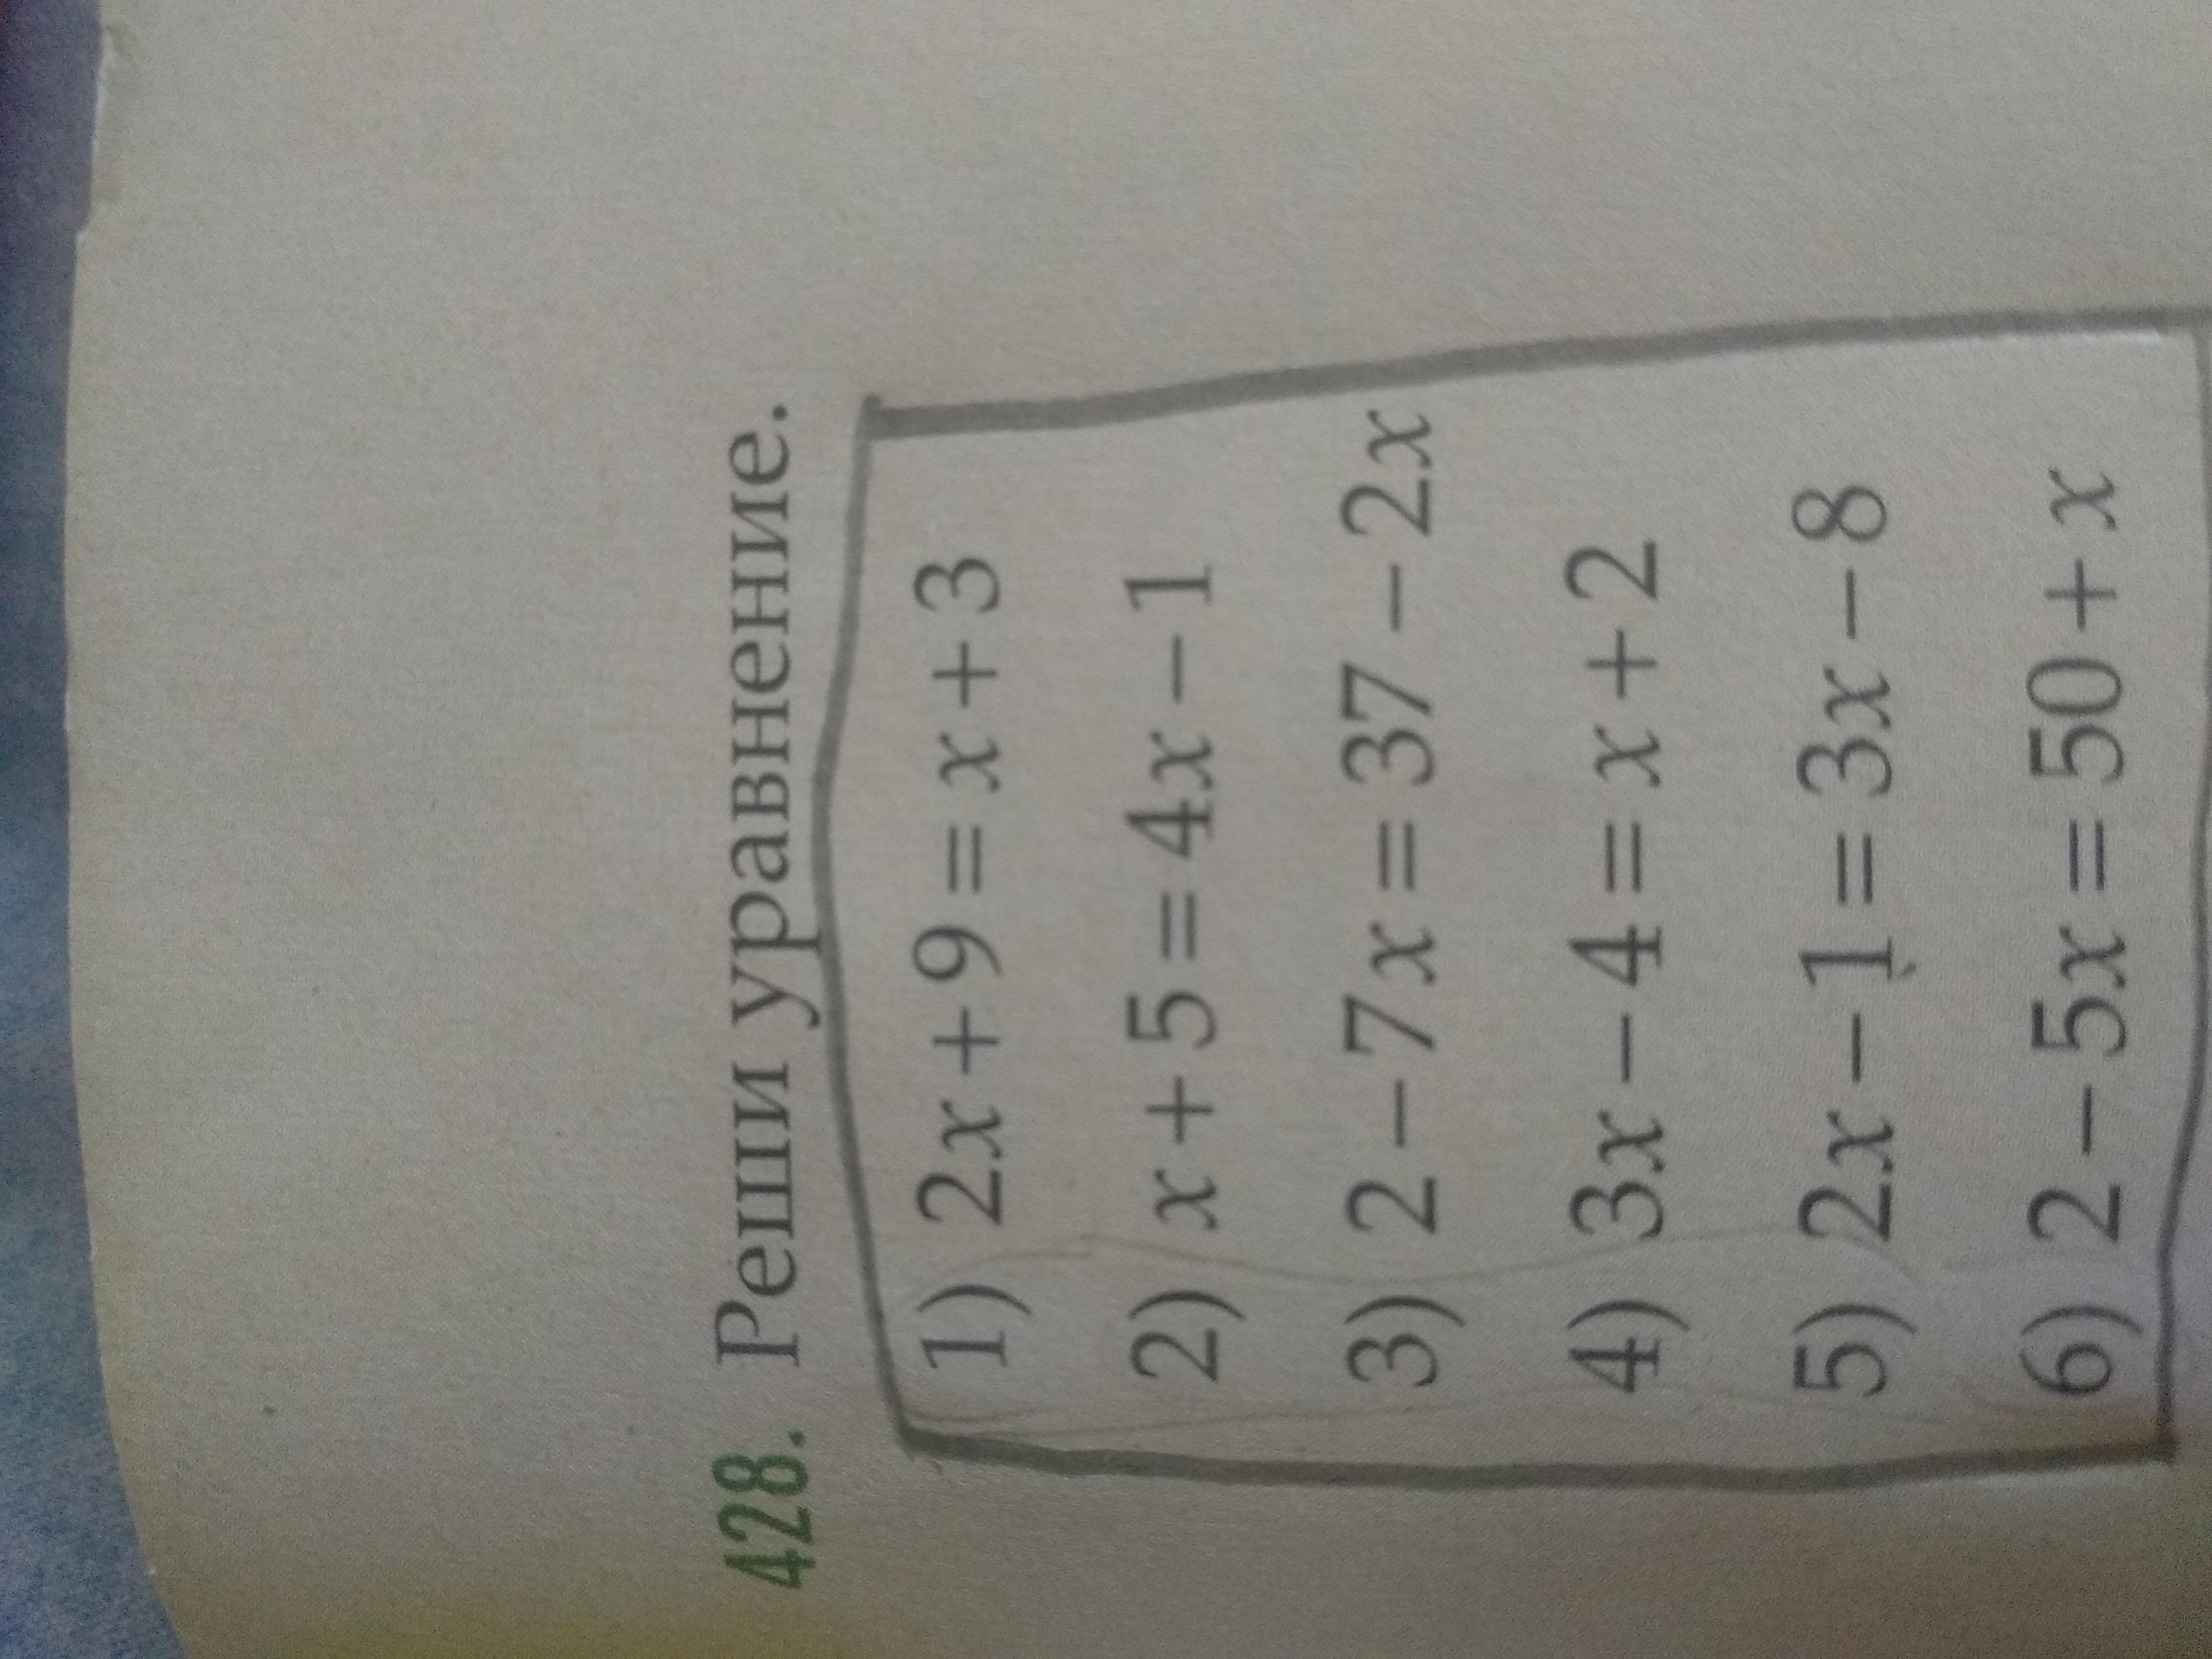 428. Реши уравнение.
1) 2x + 9 = x + 3
2) x + 5 = 4x − 1
3) 2 − 7x = 37 − 2x
4) 3x − 4 = x + 2
5) 2x − 1 = 3x − 8
6) 2 − 5x = 50 + x